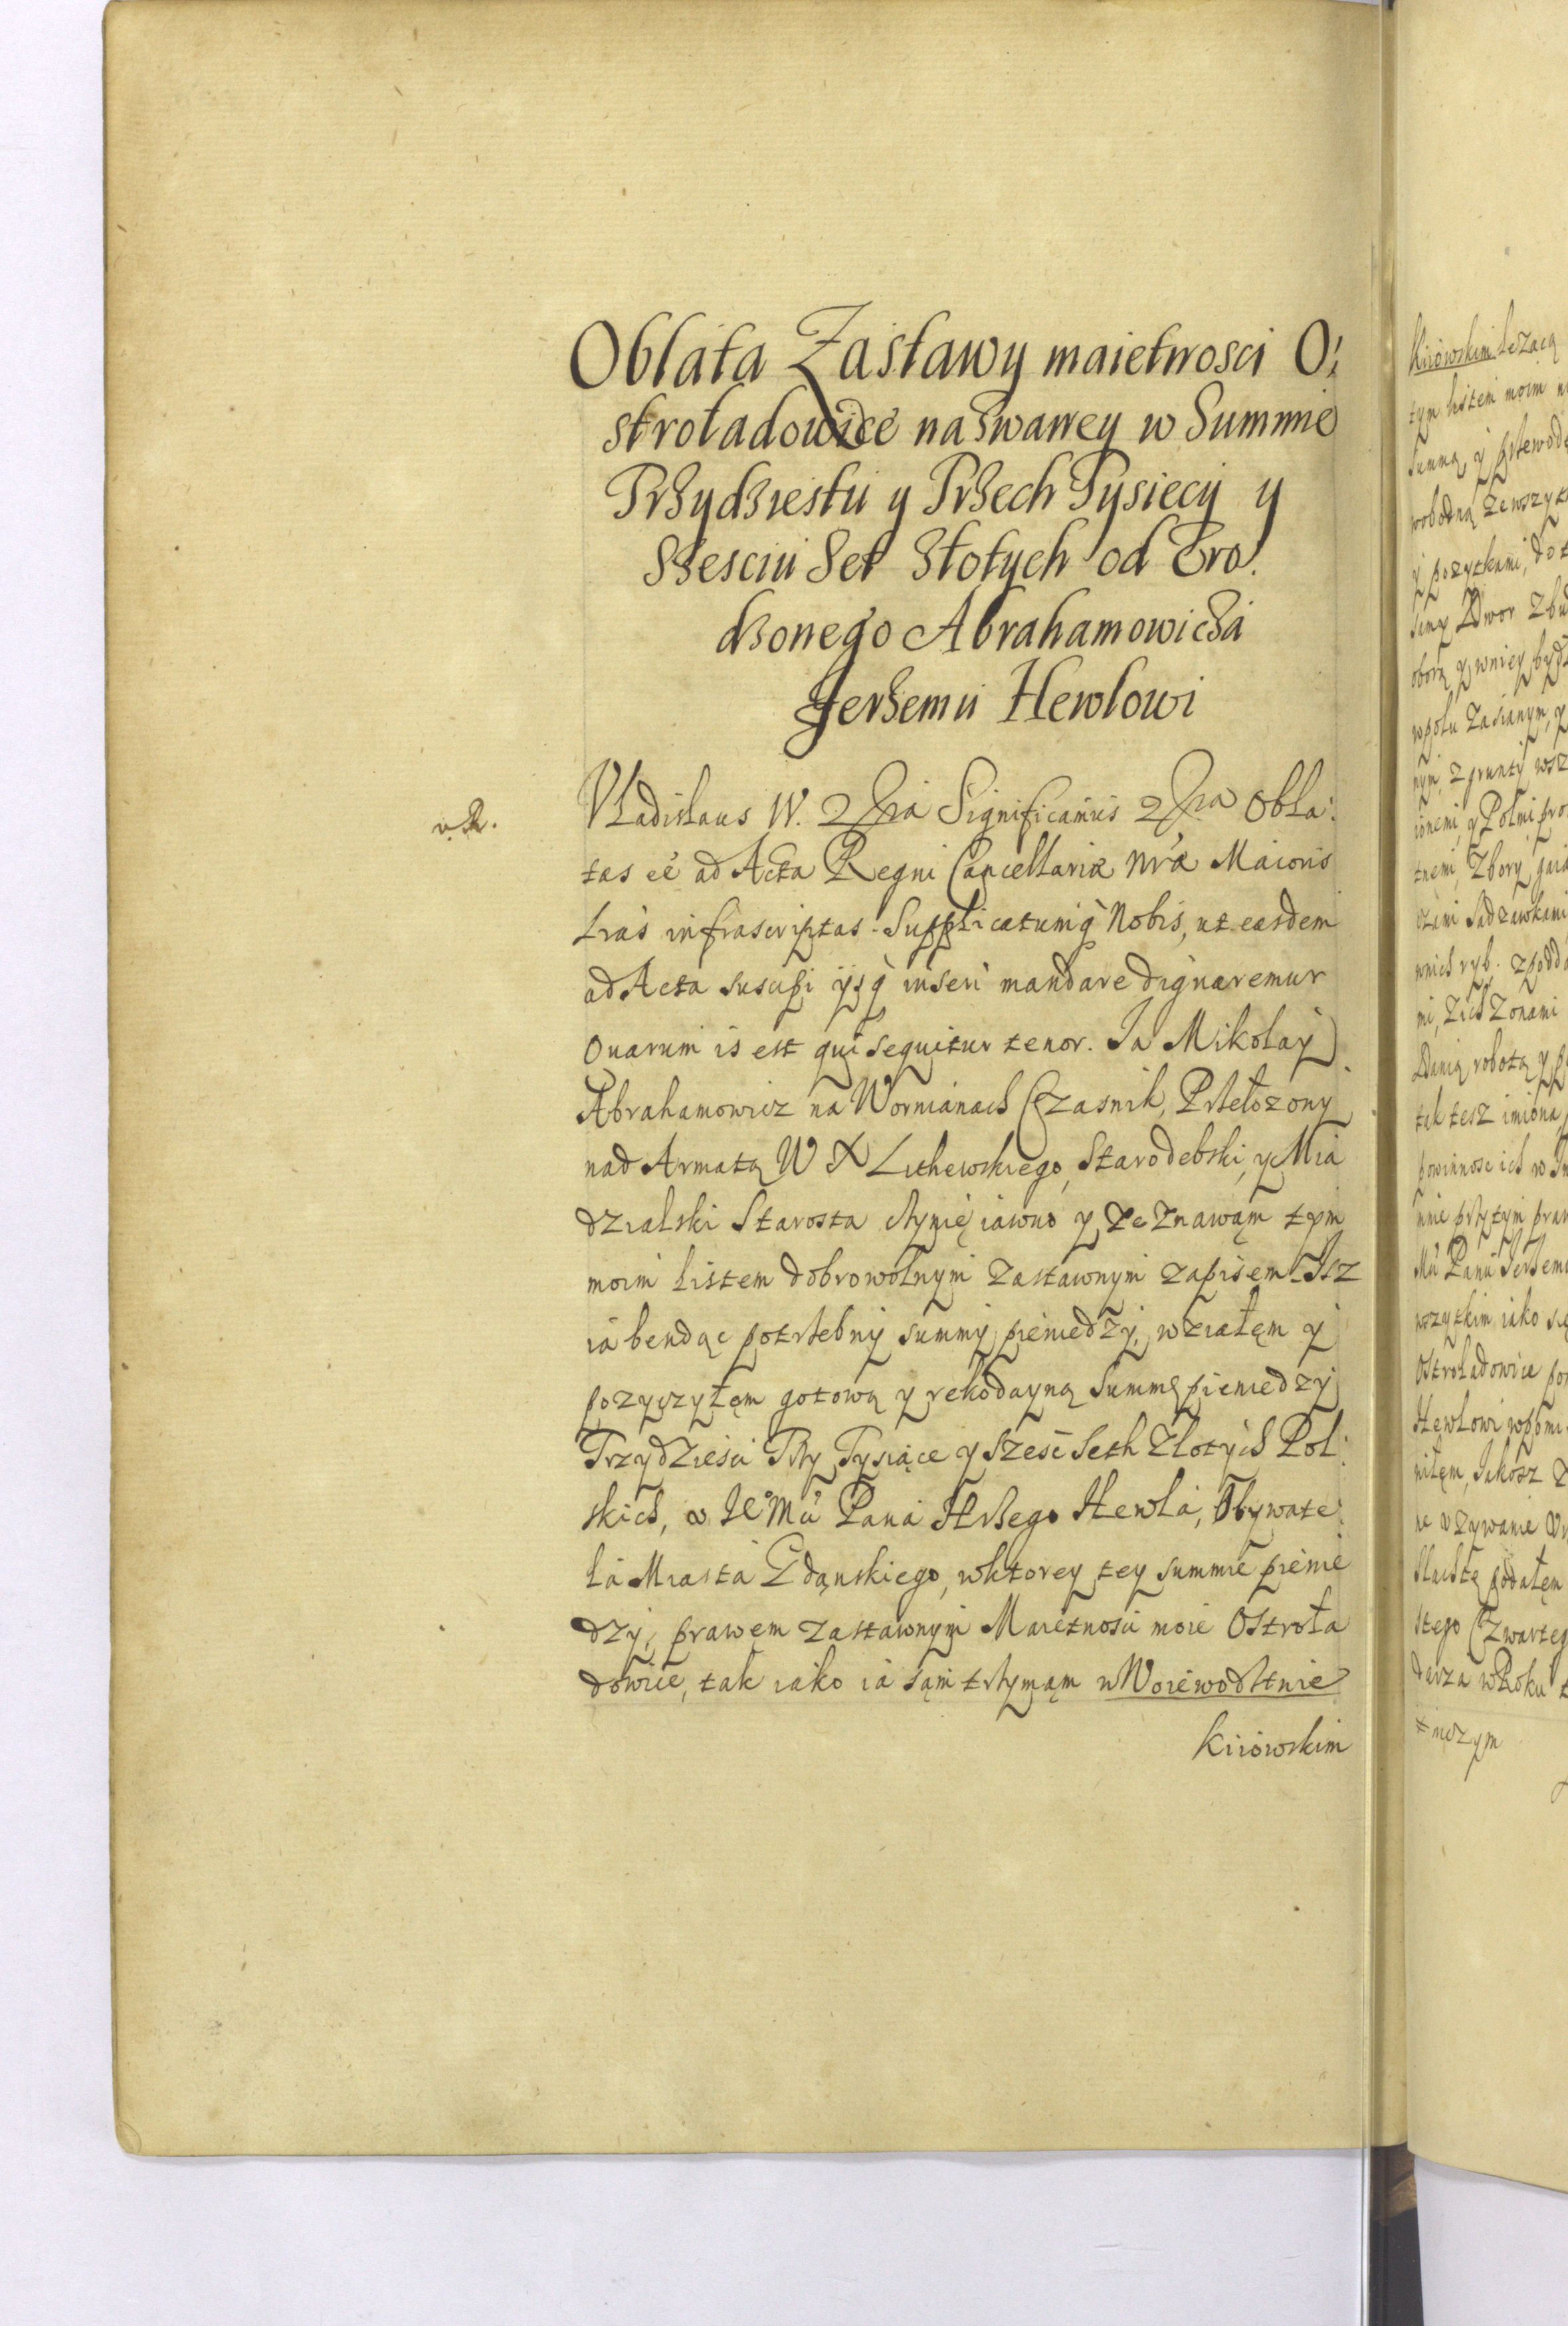 Oblata Zastawy maietnosci O:
stroładowice nazwaney w Summie
Trzydziestu y Trzech Tysiecy y
Szesciu Set Złotych od Uro:
dzonego Abrahamowicza
Jerzemu Hewlowi
Vladislaus IV. Significamus Obla:
tas eẽ ad Acta Regni Cancellariæ Nrǽ Maioris
Lrás infrascriptas. Supplicatumq́ Nobis, ut easdem
ad Acta suscipi ijsq́ inseri mandare dignaremur
Quarum is est qui sequitur tenor. Ja Mikołaÿ
Abrahamowicz na Wornianach Czasnik, Przełozony
nad Armatą W X Lithewskiego, Starodebski, y Mia
dzialski Starosta czynię iawno y Zeznawąm tym
moim listem dobrowolnym zastawnym zapisem. Isz
ia bendąc potrzebnÿ summÿ pieniedzÿ, wziałęm y
pozyczyłęm gotową y rekodayną Summę pieniedzÿ
Trzydziesci Trzy Tysiące y szesc seth Złotÿch Pol:
skich, v Je° Mći Pana Jerzego Hewla, Obywate:
la Miasta Gdąnskiego, wktorey tey summie pienie
dzÿ, prawęm zastawnym Maietnosci moie Ostroła
dowice, tak iako ia sąm trzymąm w Woiewodztwie
Kiiowskim
Kiiowskim lezącą
tym listem moim
Summą, y
wolną zewszyt
y pozytkami, do
Dwor Zbu
oborą y wniey byd
wpolu Zasianym, y
nym, z gruntÿ wsz
Zbory, gaia
Sadzawkami
wnich ryb. z podda
mi, Zich Zonami
robotą y
tak tesz imiona
powinnosc ich w
mnie przytym praw
Mci Panu Jerzemu
wszytkim iako się
Ostroładowice
Hewlowi
niłęm, Jakosz
ne vzywanie
podałęm
stego Czwarteg
w Roku